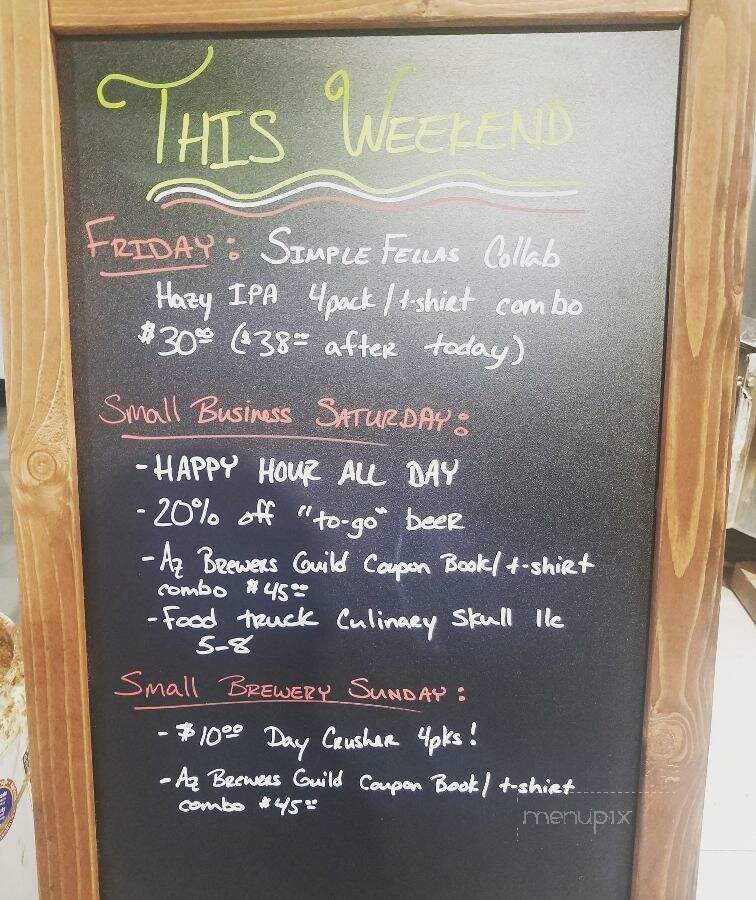 This Weekend
Friday: Simple Fellas Collab
Hazy IPA 4pack/t-shirt combo
$30⁰⁰ ($38⁰⁰ after today)
Small Business Saturday:
- Happy Hour All Day
- 20% off "to-go" beer
- Az Brewers Guild Coupon Book/t-shirt
combo $45⁰⁰
- Food truck Culinary Skull llc
5-8
Small Brewery Sunday:
- $10⁰⁰ Day Crusher 4pks!
- Az Brewers Guild Coupon Book/t-shirt
combo $45⁰⁰
menupix